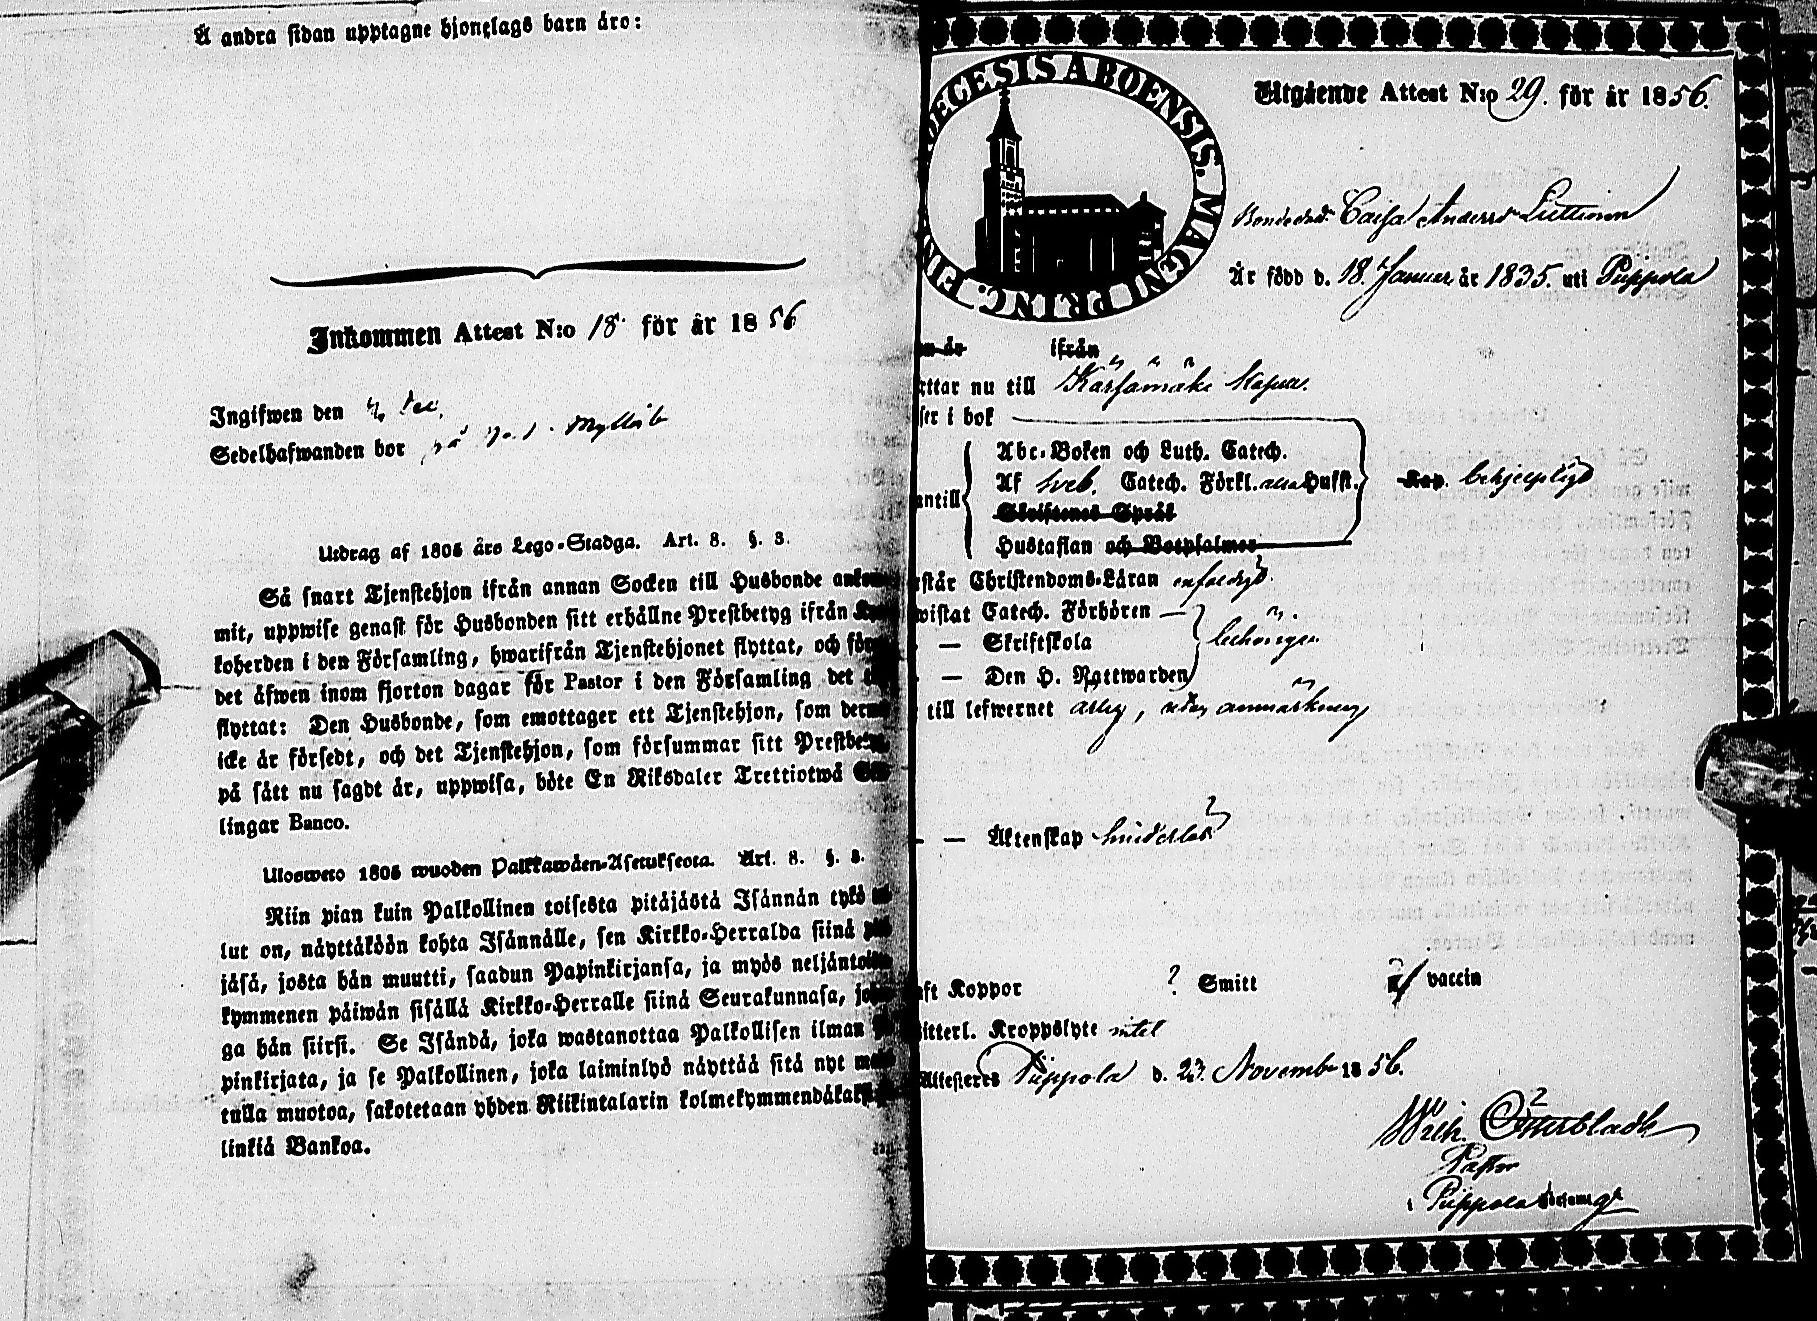 Å andra sidan upptagne hjonelags barn äro:
Inkommen Attest N:o 18. för år 1856
Ingifwen den Dec.
Sedelhafwanden bor på
Utdrag af 1805 års Lego-Stadga. Art. 8. §. 3.
Så snart Tjenstehjon ifrån annan Socken till Husbonde
mit, uppwise genast för Husbonden sitt erhållne Prestbetyg ifrån
koherden i den Församling, hwarifrån Tjenstehjonet flyttat, och
det äfwen inom fjorton dagar för Pastor i den Församling det
flyttat: Den Husbonde, som emottager ett Tjenstehjon, som
icke är försedt, och det Tjenstehjon, som försummar sitt Prestbetyg,
på sätt nu sagdt är, uppwisa, böte En Riksdaler Trettiotwå
lingar Banco.
Ulosweto 1805 wuoden Palkkawäen-Asetuksesta. Art. 8. §. 3.
Niin pian kuin Palkollinen toisesta pitäjästä Isännän tykö
lut on, näyttäköön kohta Isännälle, sen Kirkko-Herralda siinä
jäsä, josta hän muutti, saadun Papinkirjansa, ja myös
kymmenen päiwän sisällä Kirkko-Herralle siinä Seurakunnasa,
ga hän siirsi. Se Isändä, joka wastanottaa Palkollisen ilman
pinkirjata, ja se Palkollinen, joka laiminlyö näyttää sitä nyt
tulla muotoa, sakotetaan yhden Riikintalarin
linkiä Bankoa.
DIŒCESIS ABOENSIS. MAGNI PRINC. FIN
Utgående Attest N:o 29. för år 1856.
Bondedot. Caisa Andersd.
Är född d. 18. Januari år 1835. uti Piippola
är ifrån
ttar nu till Kärsämäki Kapell.
ser i bok
Abc-Boken och Luth. Catech.
antill Af Sveb. Catech. Förkl. Hufst. Kap. behjelpligt
Skriftenes Språk
Hustaflan och Botpsalmer
står Christendoms-Läran enfaldigt.
wistat Catech. Förhören —
— Skriftskola behörigen
— Den H. Nattwarden
till lefwernet ärlig, utan anmärkning
— Äktenskap hinderlös
aft Koppor ? Smitt af vaccin
itterl. Kroppslyte intet
Attesteres Piippola d. 23. November 1856.
Wilh. Österbladh
Pastor
i Piippola församg.